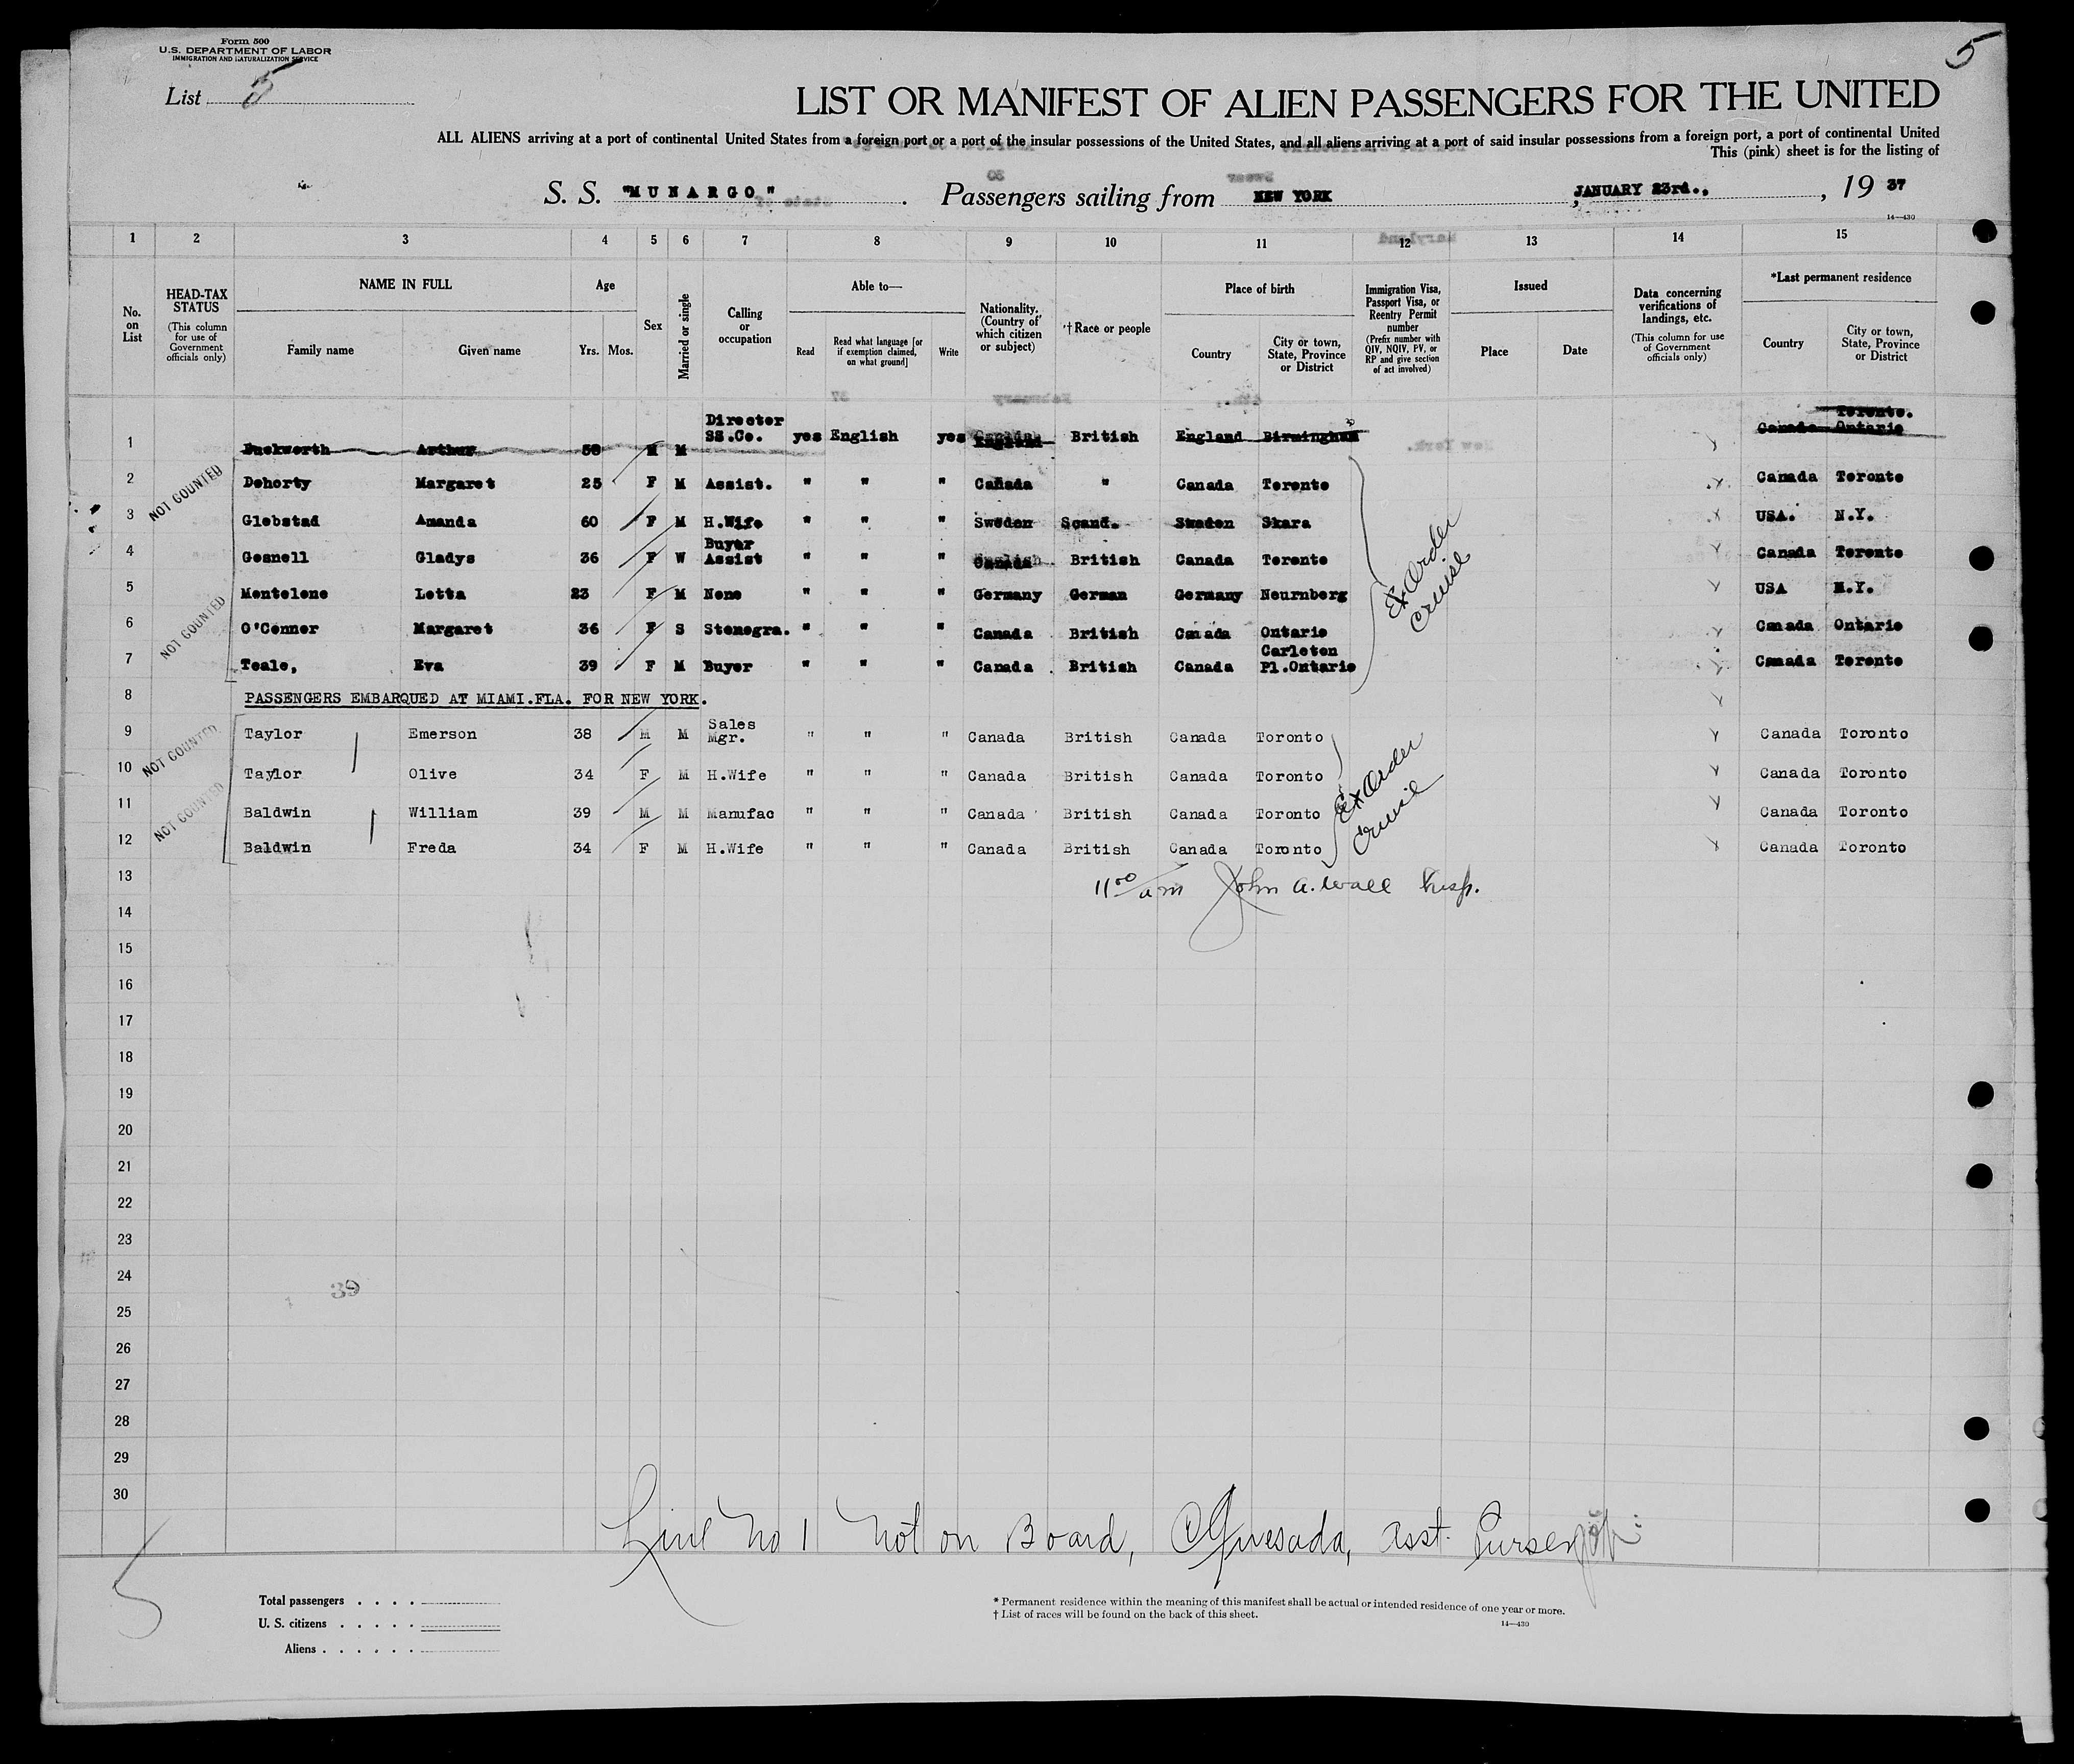 Form 500
U.S. DEPARTMENT OF LABOR
IMMIGRATION AND NATURALIZATION SERVICE
5
List 5
LIST OR MANIFEST OF ALIEN PASSENGERS FOR THE UNITED
ALL ALIENS arriving at a port of continental United States from a foreign port or a port of the insular possessions of the United States, and all aliens arriving at a port of said insular possessions from a foreign port, a port of continental United
This (pink) sheet is for the listing of
S. S. "MUNARGO". Passengers sailing from NEW YORK, JANUARY 23rd., , 19 37
14—430
1 2 3 4 5 6 7 8 9 10 11 12 13 14 15
No. on List
HEAD-TAX STATUS (This column for use of Government officials only)
NAME IN FULL Family name Given name
Age Yrs. Mos.
Sex
Married or single
Calling or occupation
Able to— Read Read what language [or if exemption claimed, on what ground] Write
Nationality. (Country of which citizen or subject)
†Race or people
Place of birth Country City or town, State, Province or District
Immigration Visa, Passport Visa, or Reentry Permit number (Prefix number with QIV, NQIV, PV, or RP and give section of act involved)
Issued Place Date
Data concerning verifications of landings, etc. (This column for use of Government officials only)
*Last permanent residence Country City or town, State, Province or District
1 Duckworth Arthur 58 M M Director SS.Co. yes English yes England British England Birmingham Canada Toronto. Ontario
2 Dohorty Margaret 25 F M Assist. " " " Canada " Canada Toronto Canada Toronto
3 Globstad Amanda 60 F M H.Wife " " " Sweden Scand. Sweden Skara USA. N.Y.
4 Gosnell Gladys 36 F W Buyer Assist " " " Canada British Canada Toronto Canada Toronto
5 Montelone Lotta 23 F M None " " " Germany German Germany Neurnberg USA N.Y.
6 O'Conner Margaret 36 F S Stenogra. " " " Canada British Canada Ontario Canada Ontario
7 Teale, Eva 39 F M Buyer " " " Canada British Canada Carleton Pl.Ontario Canada Toronto
NOT COUNTED
NOT COUNTED
Ex Order Cruise
8 PASSENGERS EMBARQUED AT MIAMI.FLA. FOR NEW YORK.
9 Taylor Emerson 38 M M Sales Mgr. " " " Canada British Canada Toronto Canada Toronto
10 Taylor Olive 34 F M H.Wife " " " Canada British Canada Toronto Canada Toronto
11 Baldwin William 39 M M Manufac " " " Canada British Canada Toronto Canada Toronto
12 Baldwin Freda 34 F M H.Wife " " " Canada British Canada Toronto Canada Toronto
NOT COUNTED
NOT COUNTED
Ex Order Cruise
13 11 00 am John A. Wall Insp.
14
15
16
17
18
19
20
21
22
23
24
39
25
26
27
28
29
30
Line No 1 Not on Board, Quesada, Asst. Purser
5
Total passengers . . . .
U. S. citizens . . . . .
Aliens . . . . . .
* Permanent residence within the meaning of this manifest shall be actual or intended residence of one year or more.
† List of races will be found on the back of this sheet.
14—430